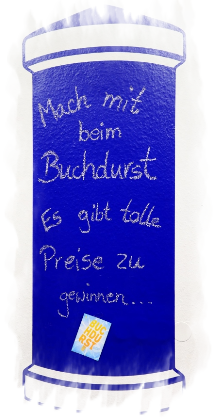 Mach mit
beim
Buchdurst
Es gibt tolle
Preise zu
gewinnen...
BUC
HDU
RST